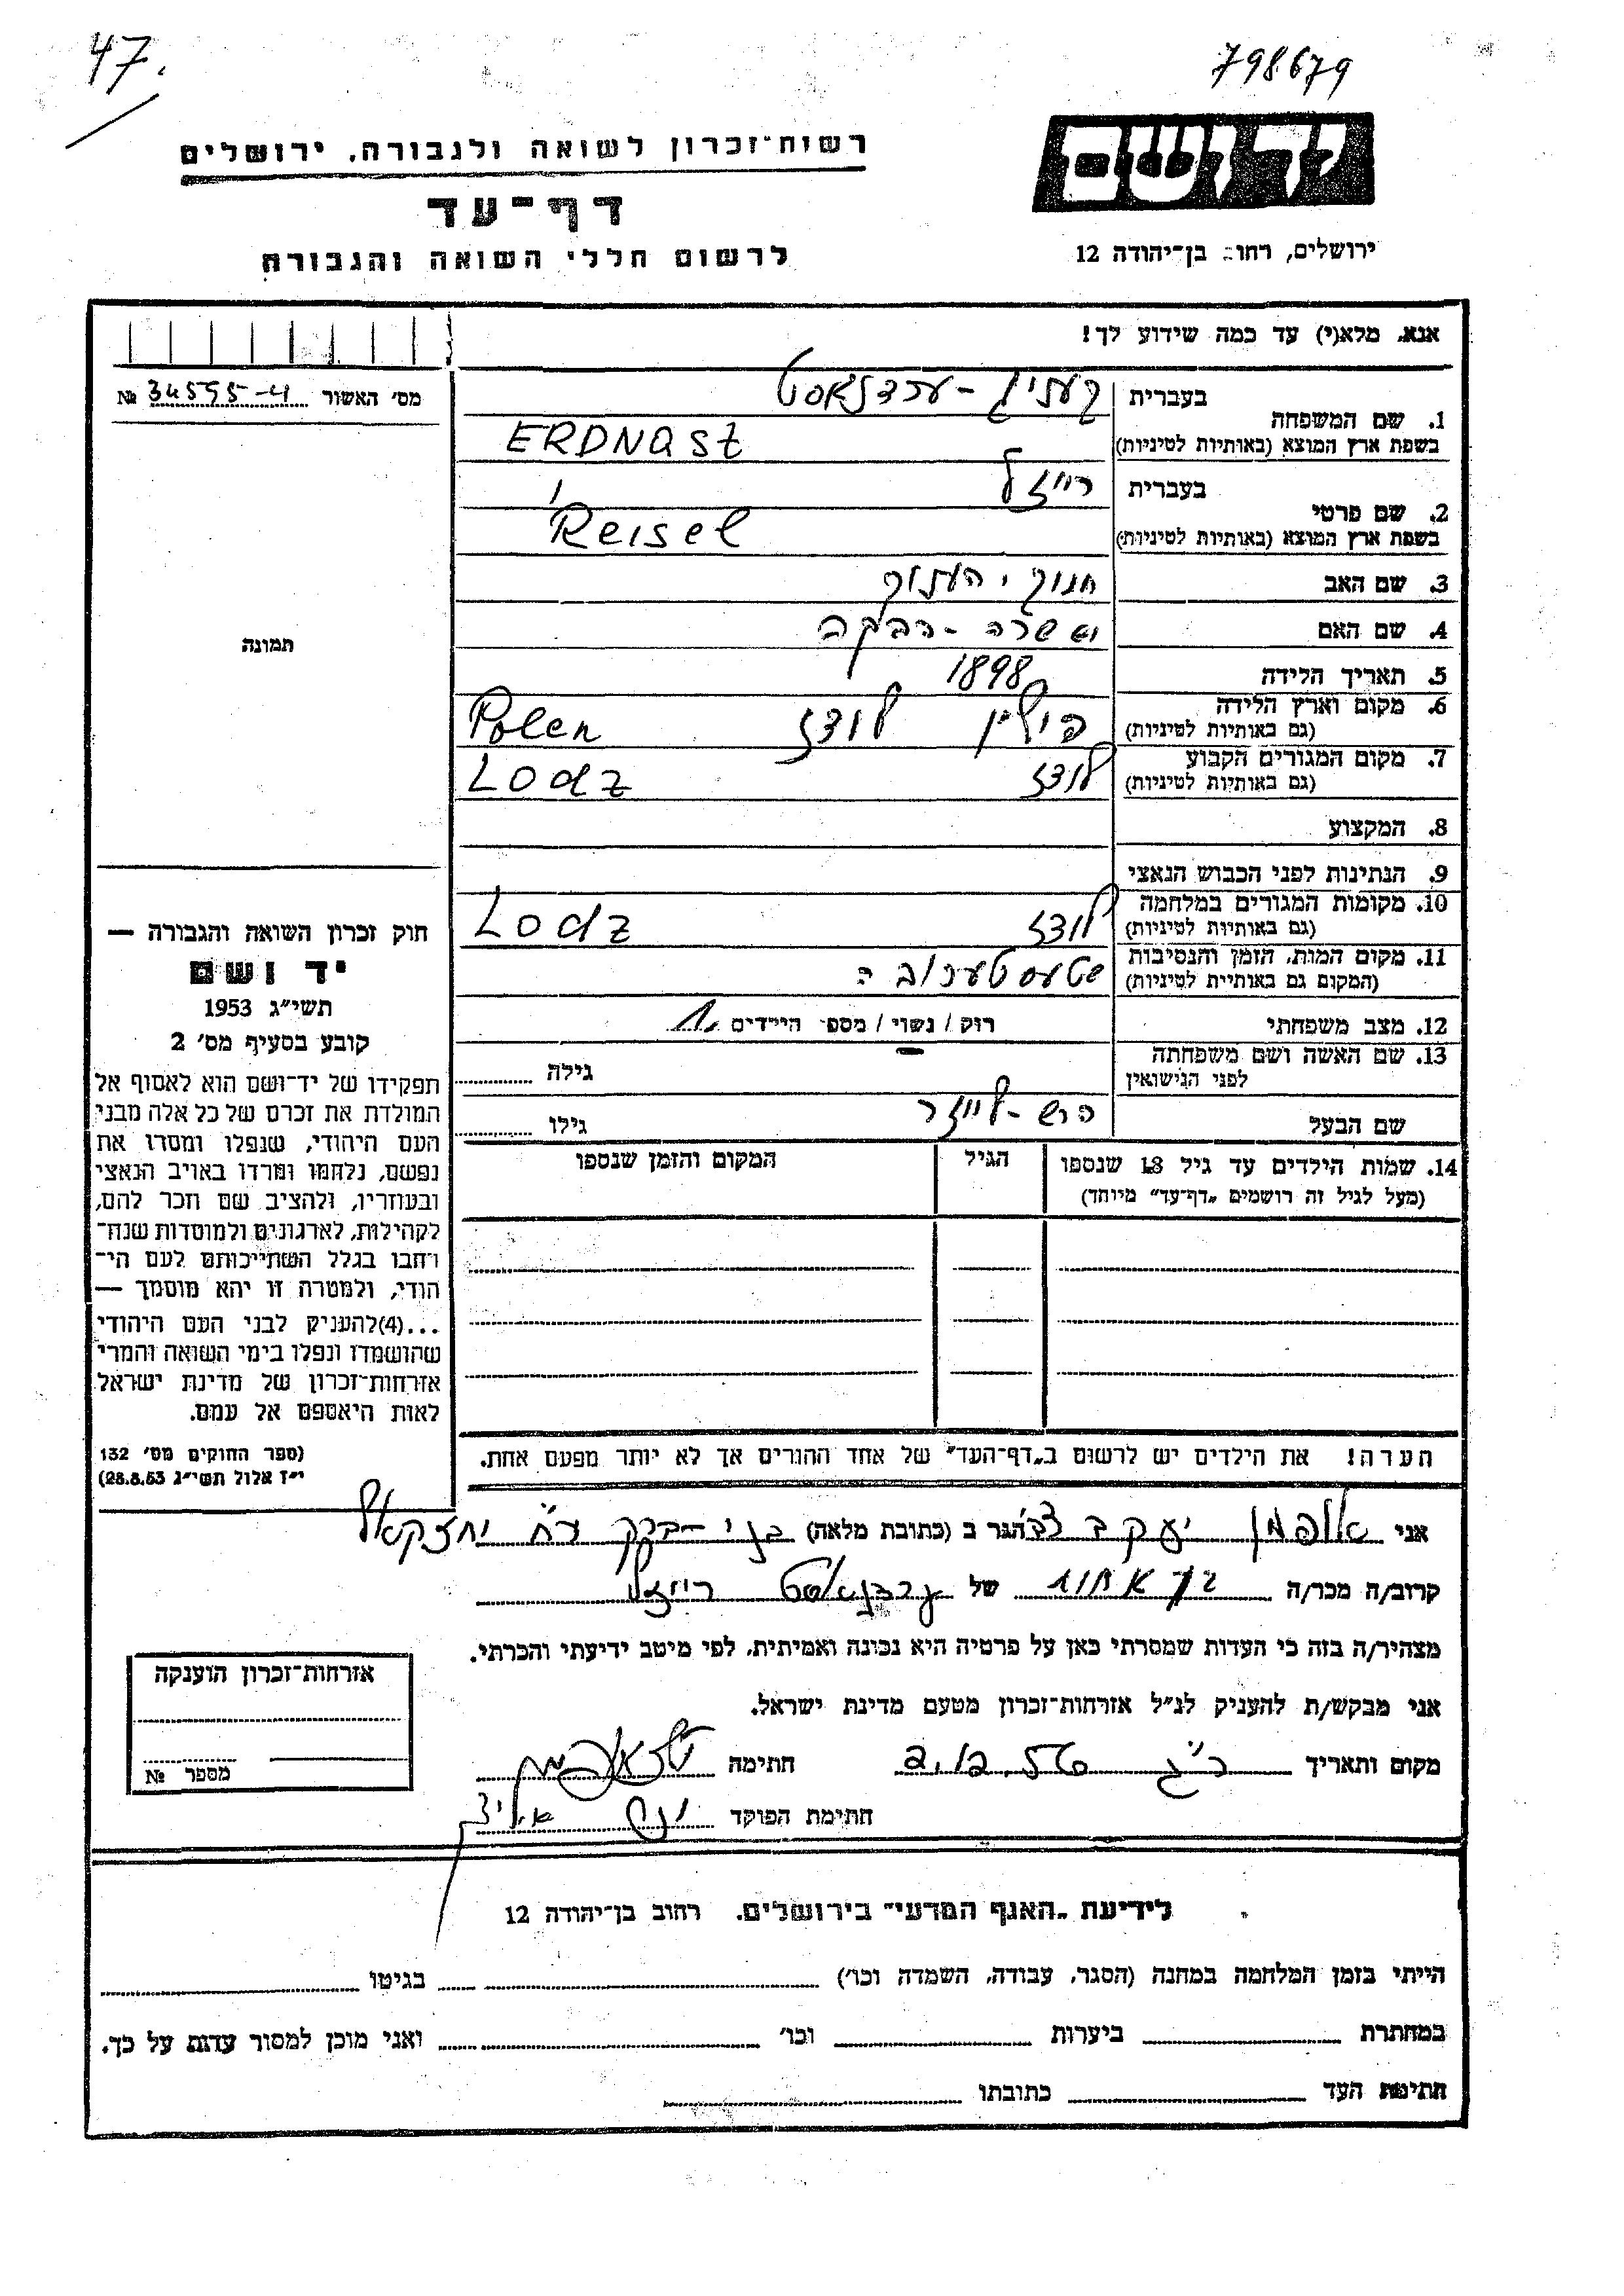 47.
798679
יד ושם
ירושלים, רחוב בן־יהודה 12
רשות־זכרון לשואה ולגבורה, ירושלים
דף־עד
לרשום חללי השואה והגבורה
אנא, מלא(י) עד כמה שידוע לך!
מס׳ האשור № 34595-4
תמונה
1. שם המשפחה
בעברית קעניג - ערדנאסט
בשפת ארץ המוצא (באותיות לטיניות) ERDNASZ
2. שם פרטי
בעברית רייזל
בשפת ארץ המוצא (באותיות לטיניות) Reisel
3. שם האב חנוך
4. שם האם שרה - רבקה
5. תאריך הלידה 1898
6. מקום וארץ הלידה פוילין לודז Polen
(גם באותיות לטיניות)
7. מקום המגורים הקבוע לודז Lodz
(גם באותיות לטיניות)
8. המקצוע
9. הנתינות לפני הכבוש הנאצי
10. מקומות המגורים במלחמה לודז Lodz
(גם באותיות לטיניות)
11. מקום המות, הזמן והנסיבות
(המקום גם באותיית לטיניות)
12. מצב משפחתי רוק / נשוי / מספ׳ הילדים 1.
13. שם האשה ושם משפחתה גילה
לפני הנישואין
שם הבעל הרש - לייזר גילו
14. שמות הילדים עד גיל 18 שנספו הגיל המקום והזמן שנספו
(מעל לגיל זה רושמים „דף־עד״ מיוחד)
הערה! את הילדים יש לרשום ב„דף־העד״ של אחד ההורים אך לא יותר מפעם אחת.
חוק זכרון השואה והגבורה —
יד ושם
תשי״ג 1953
קובע בסעיף מס׳ 2
תפקידו של יד־ושם הוא לאסוף אל
המולדת את זכרם של כל אלה מבני
העם היהודי, שנפלו ומסרו את
נפשם, נלחמו ומרדו באויב הנאצי
ובעוזריו, ולהציב שם וזכר להם,
לקהילות, לארגונים ולמוסדות שנח־
רחבו בגלל השתייכותם לעם הי־
הודי, ולמטרה זו יהא מוסמך —
...(4)להעניק לבני העם היהודי
שהושמדו ונפלו בימי השואה והמרי
אזרחות־זכרון של מדינת ישראל
לאות היאספם אל עמם.
(ספר החוקים מס׳ 132
י״ז אלול תשי״ג 28.8.53)
אני יעקב צבי הגר ב (כתובת מלאה) בני - ברק יחזקאל
קרוב/ה מכר/ה בן אחות של ערדנאסט רייזל
מצהיר/ה בזה כי העדות שמסרתי כאן על פרטיה היא נכונה ואמיתית, לפי מיטב ידיעתי והכרתי.
אני מבקש/ת להעניק לנ״ל אזרחות־זכרון מטעם מדינת ישראל.
מקום ותאריך חתימה
חתימת הפוקד
אזרחות־זכרון הוענקה
מספר №
לידיעת „האגף המדעי״ בירושלים, רחוב בן־יהודה 12
הייתי בזמן המלחמה במחנה (הסגר, עבודה, השמדה וכו׳) בגיטו
במחתרת ביערות וכו׳ ואני מוכן למסור עדות על כך.
חתימת העד כתובתו